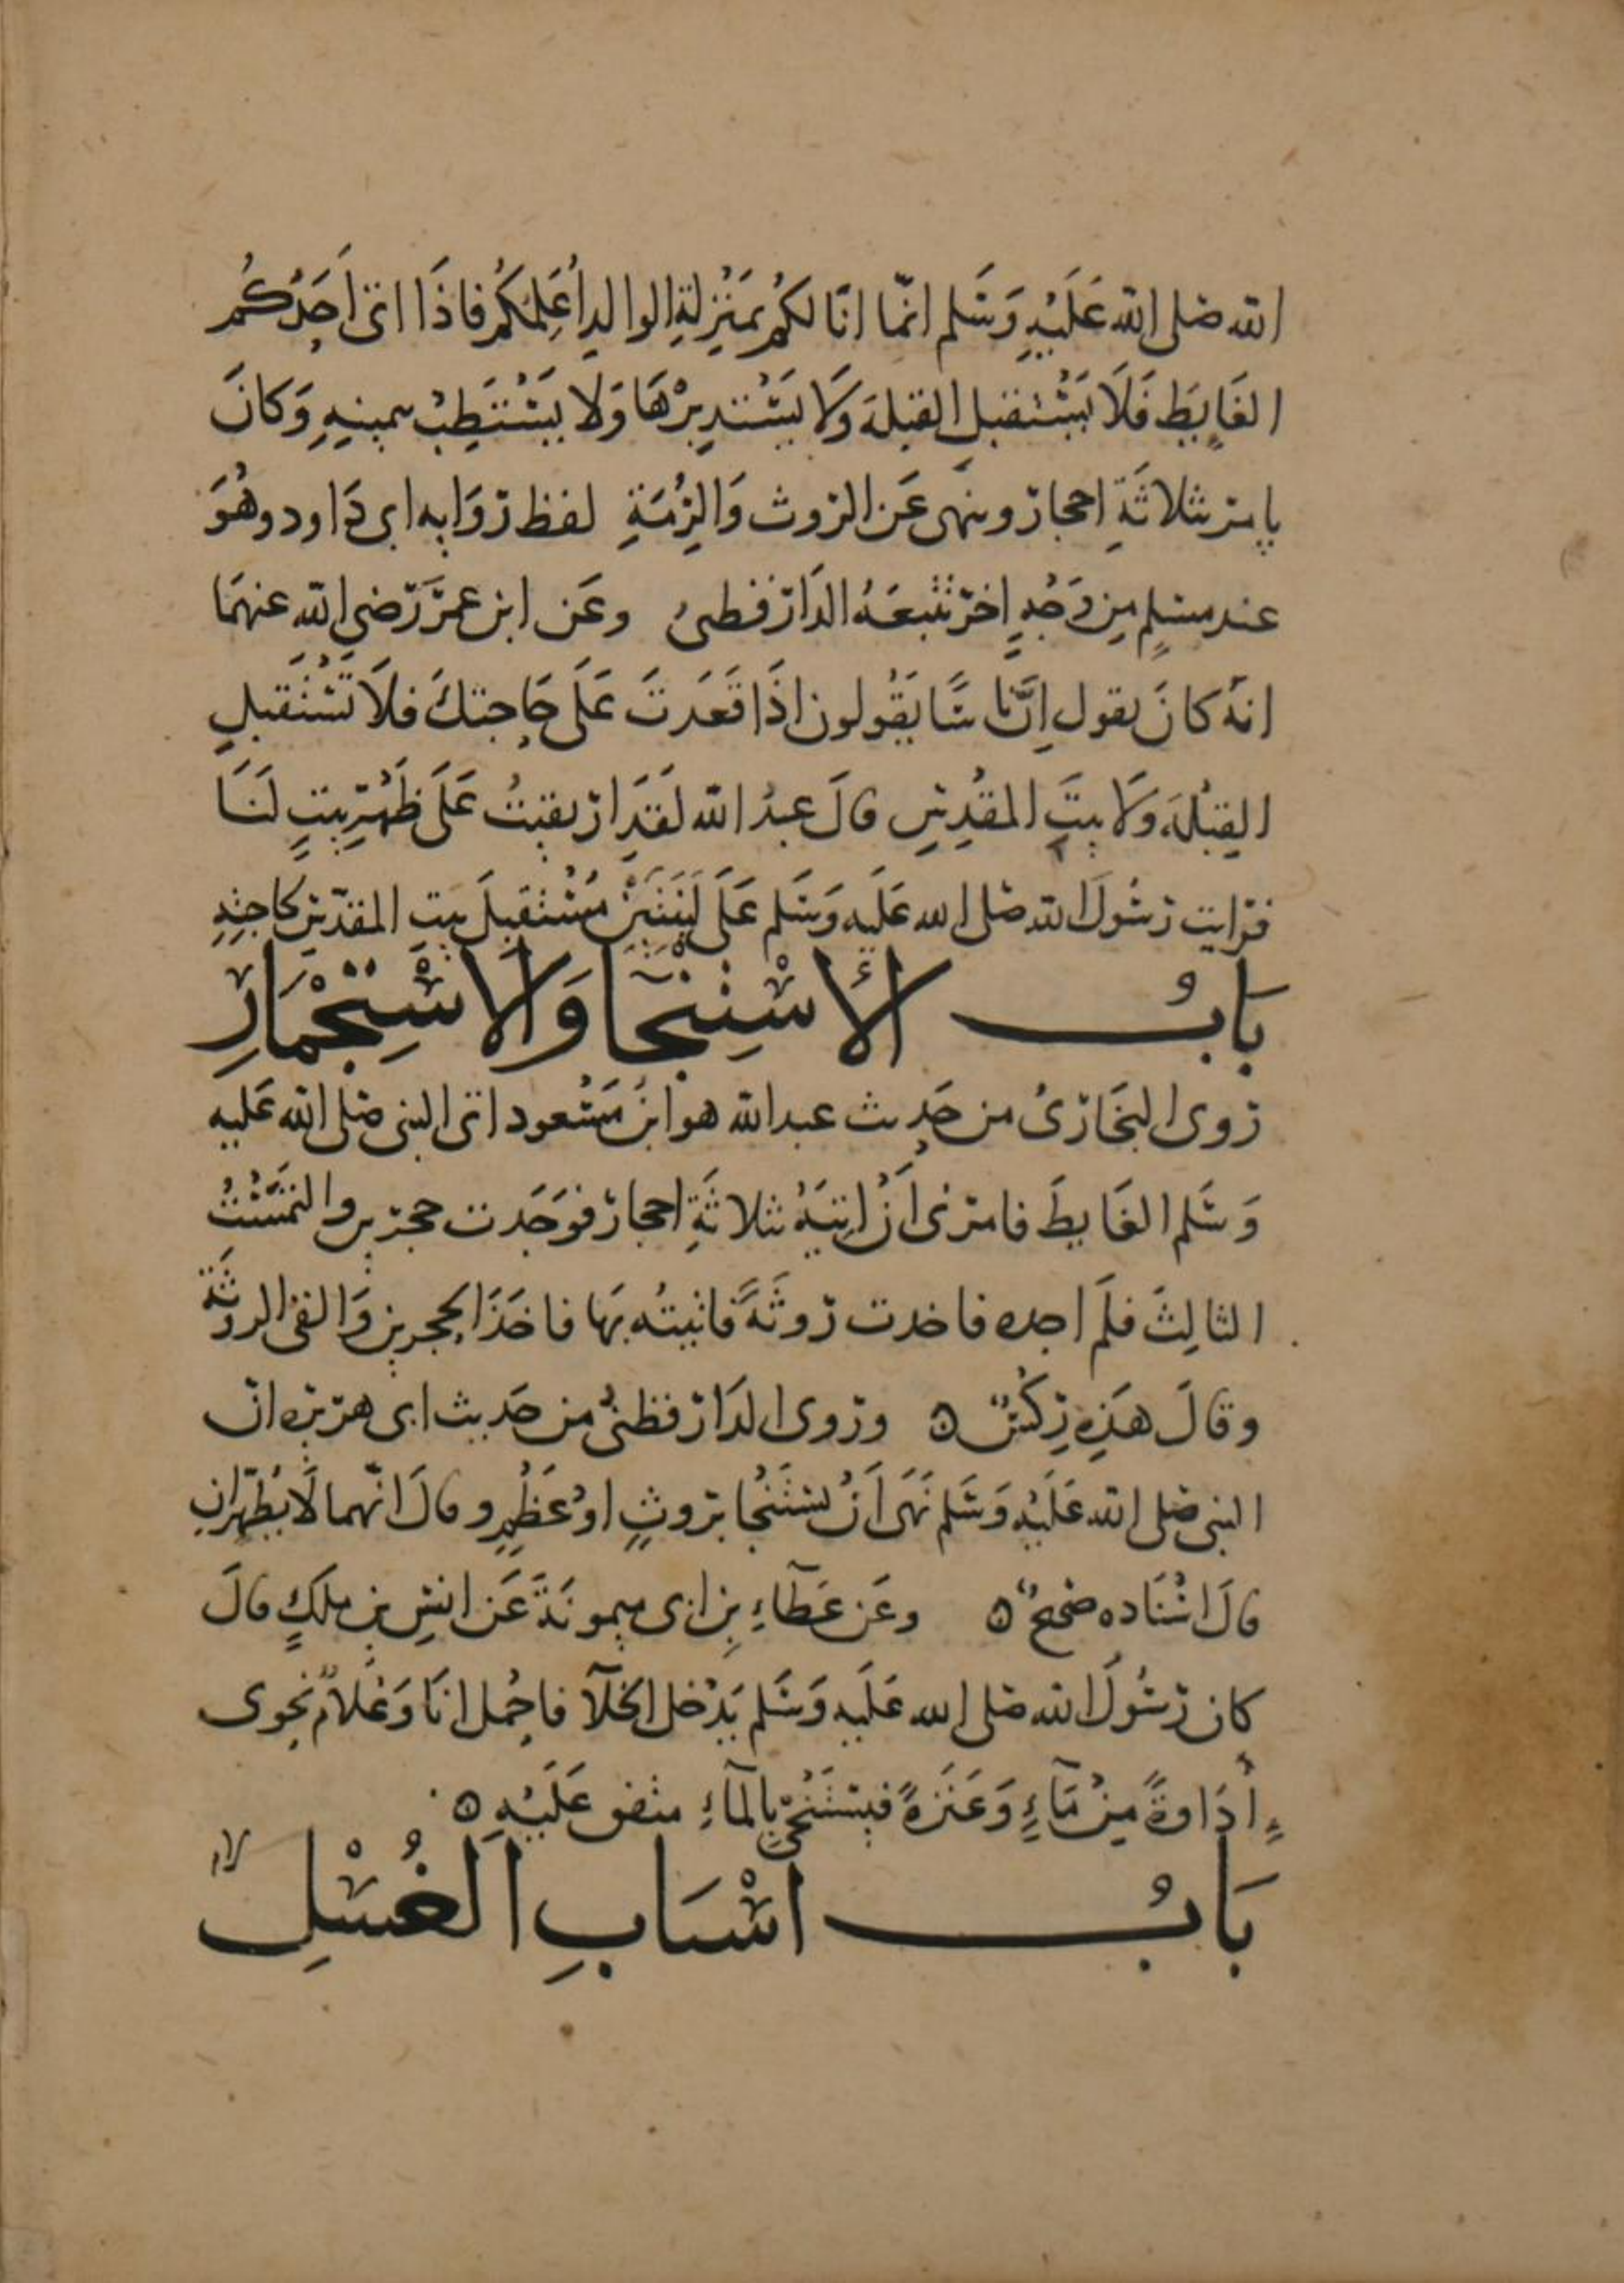 الله صلى الله عَلَيْهِ وَسَلم انّما انَا لكُم بمَنْزِلةِ الوالدِ اُعَلِمكُم فاذَا اتى اَحَدُكُم
الغَايِطَ فَلَا يَسْتقبلِ القبلةَ وَلَا يَسْتدبِرْهَا وَلا يَسْتَطِبْ بيمينِهِ وَكانَ
يامر بثلاثَةِ احجار وينهى عَن الروث وَالرِّمَةِ لفظ رِوَايه ابى دَاود وهُوَ
عند مسلمٍ مِن وَجْهٍ اخر تتبعَهُ الدَارقطنىُ وعَن ابن عمَر رَضي الله عنهمَا
انهُ كانَ يقول اِنَّ نا سًا يَقُولون اذَا قَعَدتَ عَلَى حَاجتكَ فلَا تَسْتَقبلِ
القِبْلةَ وَلَا بيتَ المقْدِسِ قالَ عبدُ الله لَقدِ ارتقيتُ عَلَى ظَهْرِ بيتٍ لَنَا
فرايت رسُولَ الله صلى الله عَلَيه وَسَلم عَلَى لَبِنَتَيْن مُسْتقبِلَ بيتِ المقدِسِ لحاجتِهِ
بَابُ الاسْتِنْجَا وَالاسْتِجْمَارِ
روى البخَارىُ من حَديث عبد الله هو ابن مَسْعود اتى النبى صلى الله عَليه
وَسَلم الغَايطَ فامرنى اَنْ اتِيَهُ بثلاثَةِ احجار فوَجَدت حجرَين والتمَسْتُ
الثالِثَ فلَم اجده فاخدت رَوثَةً فاتيتُه بهَا فاخَذَ الحجرين وَالقى الروثَةَ
وقالَ هَذِهِ رِكسٌ ۞ وروى الدَارقطنىُّ من حَديث ابى هريره انّ
النبى صلى الله عَلَيْهِ وَسَلم نَهَى اَنْ يسْتَنْجَا بروثٍ اوْ عَظْمٍ وقالَ انّهما لَا يُطَهّرانِ
قالَ اسْنَاده صَحيحٌ ۞ وعَن عَطآءِ بنِ ابى ميمونَةَ عَن انسِ بنِ ملكٍ قالَ
كان رسُولَ الله صلى الله عَلَيه وَسَلم يَدْخل الخلآ فاحْمل انَا وَغلامٌ نحوى
أدَاوةً مِنْ مَآءٍ وَعَنَزةً فيسْتَنْجى بالمآءِ متفق عَلَيْهِ ۞
بَابُ اسْبَابِ الغُسْلِ